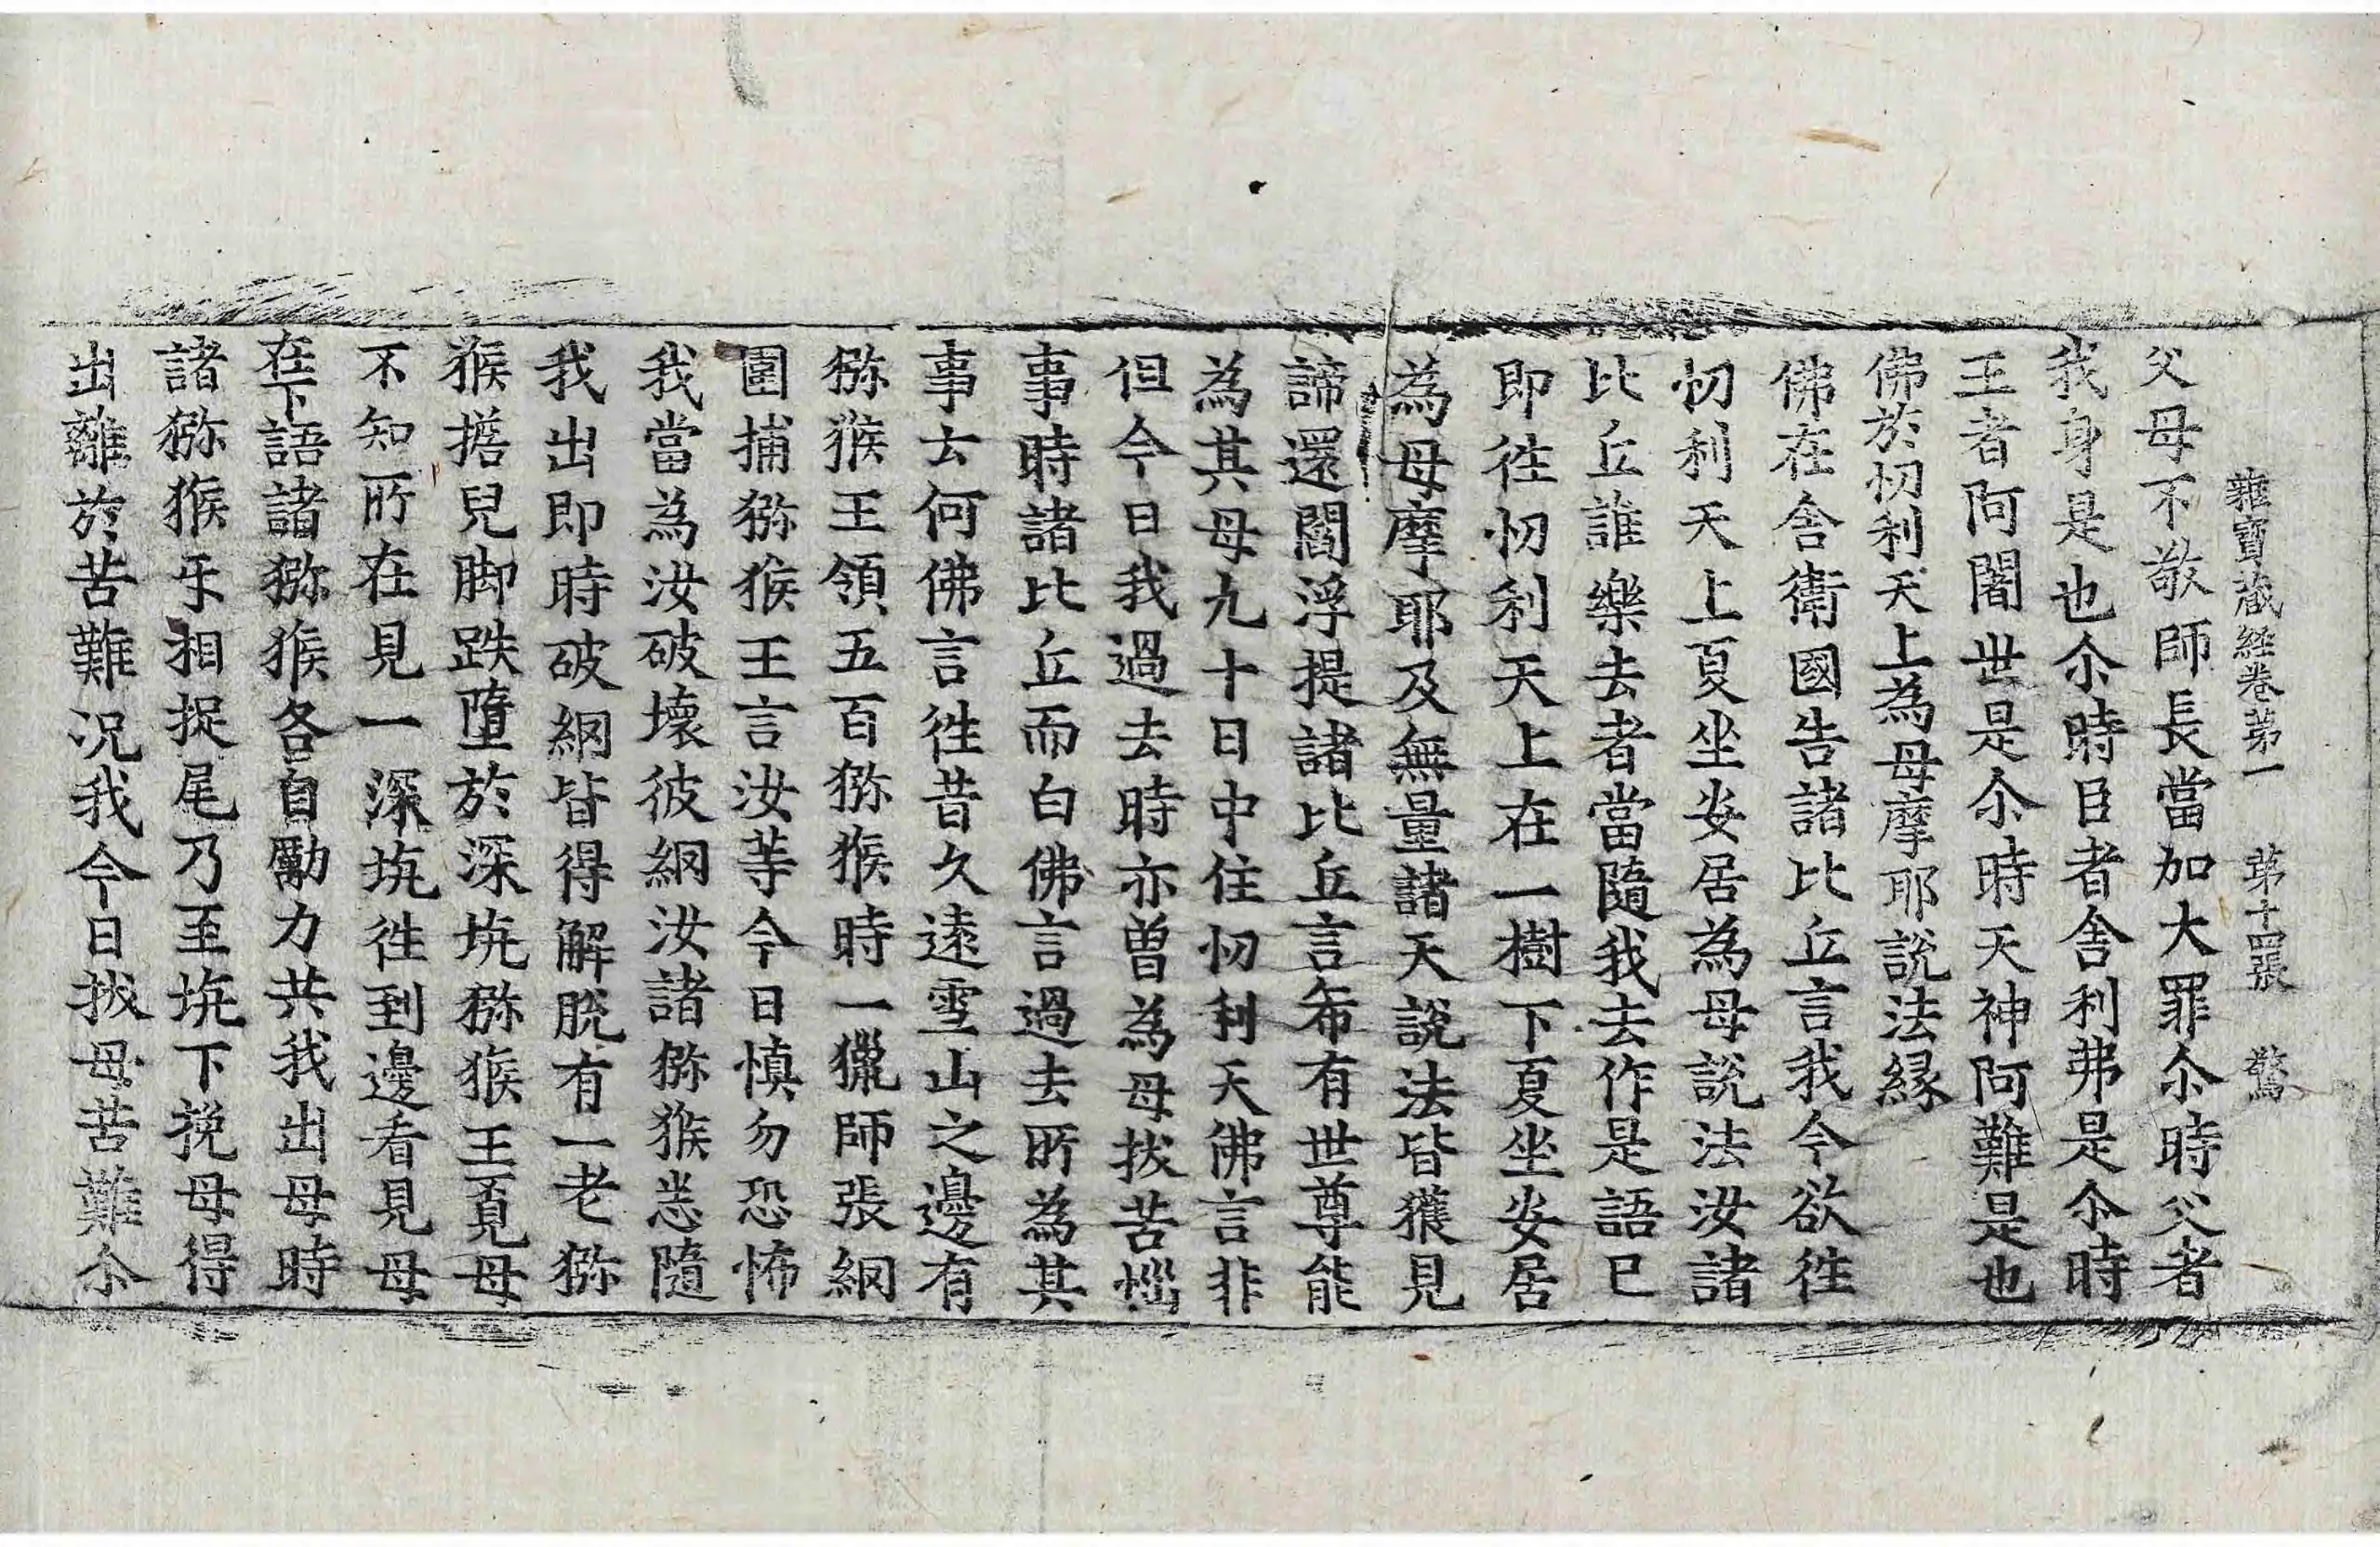 雜寶藏經卷第一 第十四張 驚
父母不敬師長當加大罪尒時父者
我身是也尒時臣者舍利弗是尒時
王者阿闍世是尒時天神阿難是也
佛於忉利天上為母摩耶說法緣
佛在舍衛國告諸比丘言我今欲往
忉利天上夏坐安居為母說法汝諸
比丘誰樂去者當隨我去作是語已
即往忉利天上在一樹下夏坐安居
為母摩耶及無量諸天說法皆獲見
諦還閻浮提諸比丘言希有世尊能
為其母九十日中住忉利天佛言非
但今日我過去時亦曾為母拔苦惱
事時諸比丘而白佛言過去所為其
事云何佛言往昔久遠雪山之邊有
獼猴王領五百獼猴時一獵師張網
圍捕獼猴王言汝等今日慎勿恐怖
我當為汝破壞彼網汝諸獼猴悉隨
我出即時破網皆得解脫有一老獼
猴擔兒脚跌墮於深坑獼猴王覓母
不知所在見一深坑往到邊看見母
在下語諸獼猴各自勵力共我出母時
諸獼猴乎相捉尾乃至坑下挽母得
出離於苦難况我今日拔母苦難尒